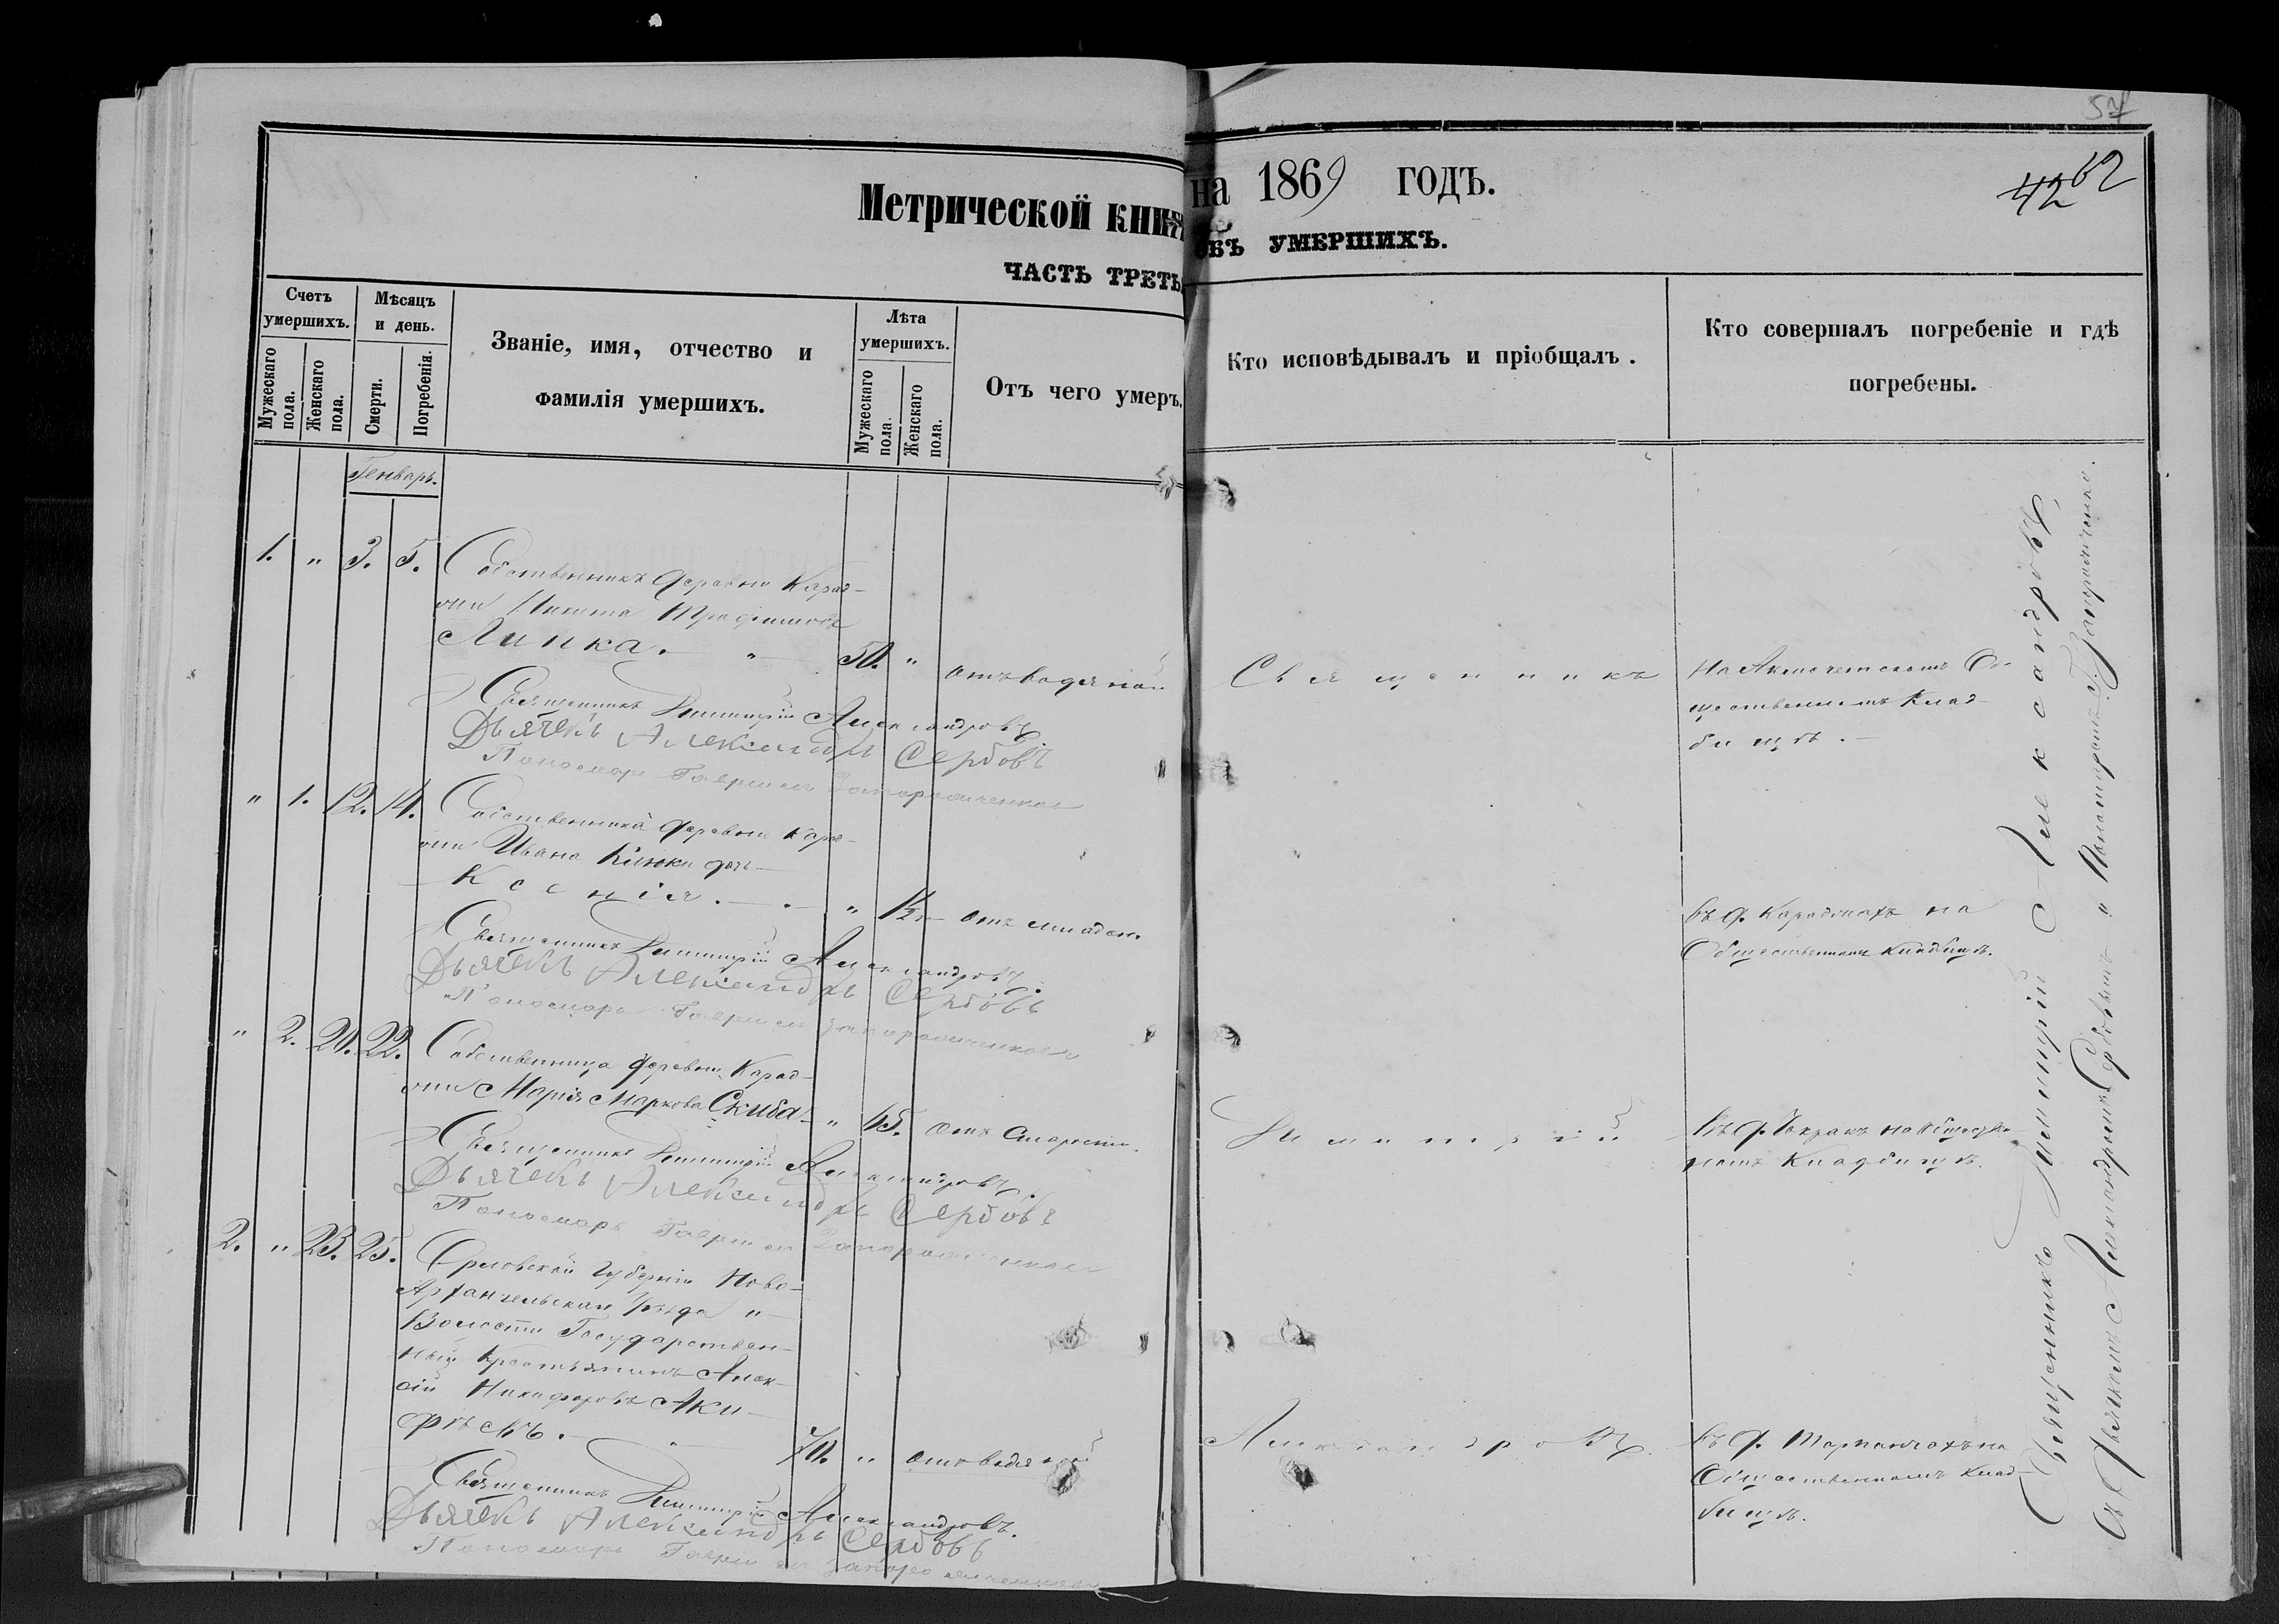 Метрической книги на 1869 годъ.
42 62
часть треть объ умершихъ.
Счетъ умершихъ.
Мужескаго пола.
Женскаго пола.
Мѣсяцъ и день.
Смерти.
Погребенія.
Званіе, имя, отчество и
фамилія умершихъ.
Лѣта умершихъ.
Мужескаго пола.
Женскаго пола.
Отъ чего умеръ.
Кто исповѣдывалъ и пріобщалъ.
Кто совершалъ погребеніе и гдѣ
погребены.
Генварь.
1. " 3. 5. Собственникъ деревни Карад-
Никита Трофимовъ
Липка. 50. " отъ водяной
Священникъ
На Акмечетскомъ Об-
щественномъ клад-
бищѣ.
Священникъ Димитрій Александровъ.
Дьячекъ Александръ Сербовъ
Пономарь Гавріилъ
" 1. 12. 14. Собственника деревни Карад-
Ивана дочь
Ксенія. " 1½ отъ младен.
въ д. на
Общественномъ кладбищѣ.
Священникъ Димитрій Александровъ.
Дьячекъ Александръ Сербовъ
Пономарь Гавріилъ
" 2. 20. 22. Собственница деревни Карад-
Марія Маркова Скиба " отъ старости.
Димитрій
въ д. на обществен-
номъ кладбищѣ.
Священникъ Димитрій Александровъ.
Дьячекъ Александръ Сербовъ
Пономарь Гавріилъ
2. " 23. 25. Орловской губерніи Ново-
Архангельской уѣзда "
Волости Государствен-
ный крестьянинъ Алек-
сій Никифоровъ Аки-
70. " отъ водяной
Александровъ.
въ д. на
Общественномъ клад-
бищѣ.
Священникъ Димитрій Александровъ.
Дьячекъ Александръ Сербовъ
Пономарь Гавріилъ
Священникъ Димитрій Александровъ,
съ Дьячкомъ Александромъ Сербовымъ и Пономаремъ